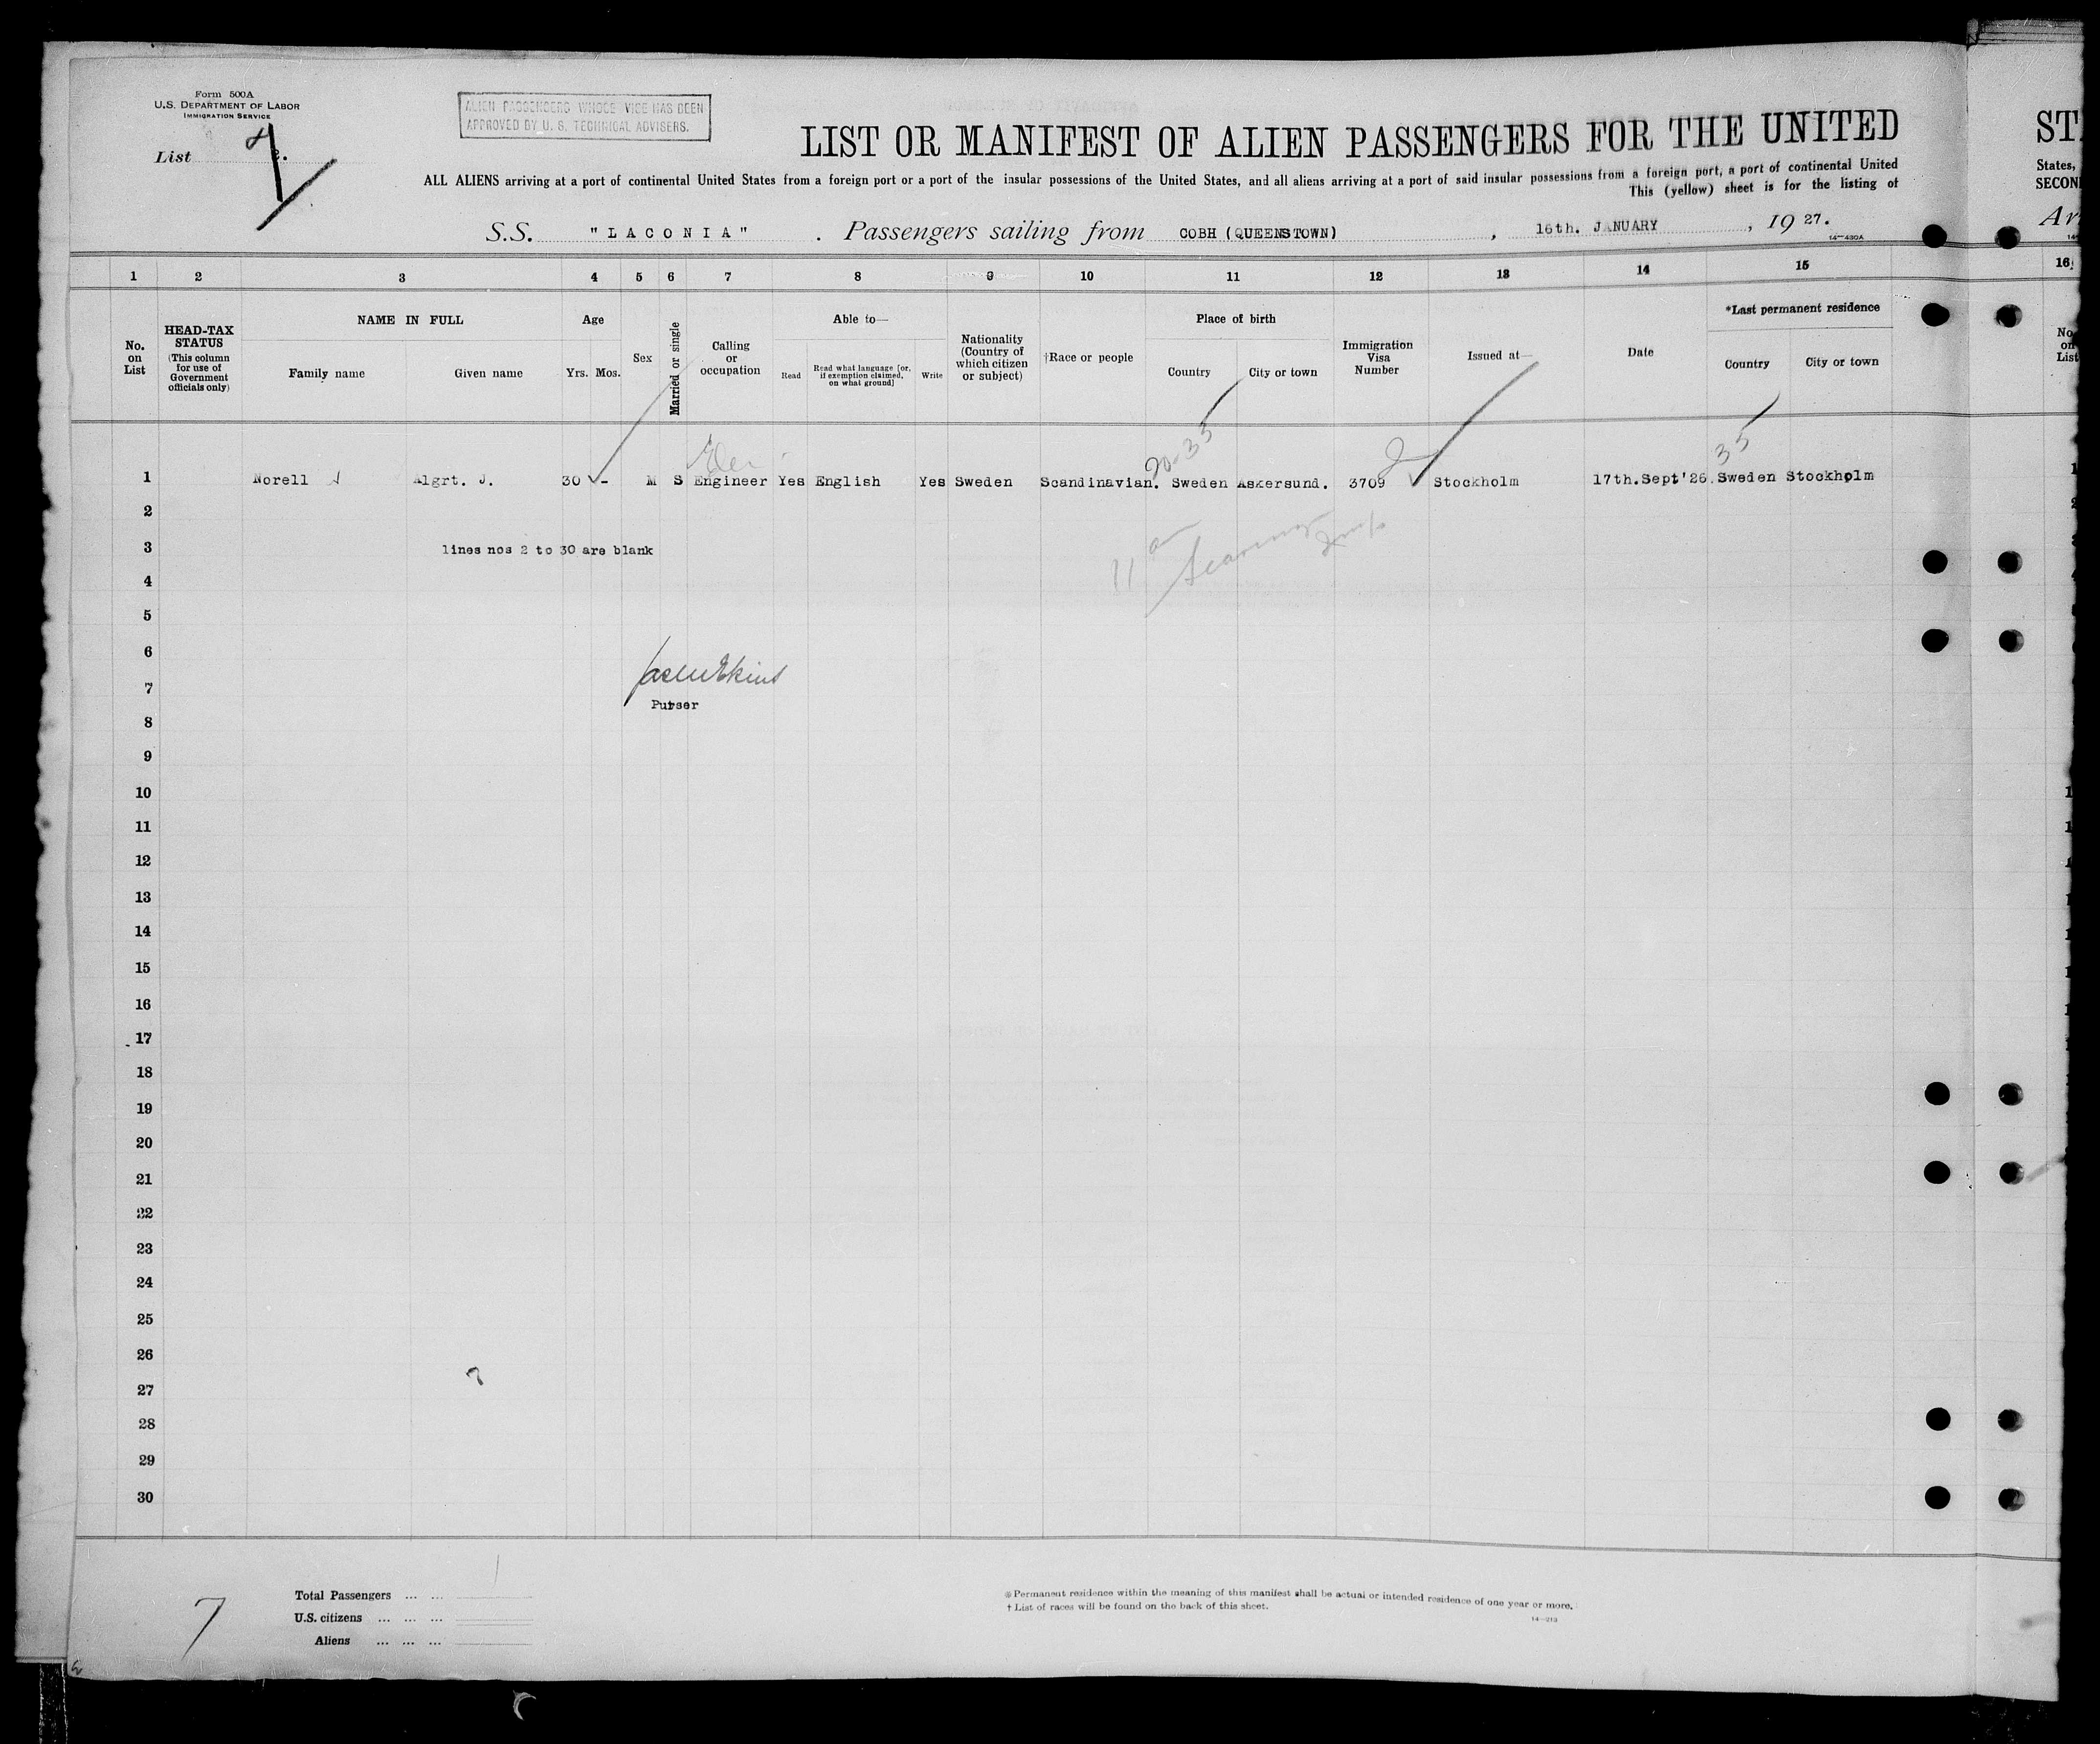 Form 500A
U.S. DEPARTMENT OF LABOR
IMMIGRATION SERVICE
List
ALIEN PASSENGERS WHOSE VICE HAS BEEN
APPROVED BY U. S. TECHNICAL ADVISERS.
LIST OR MANIFEST OF ALIEN PASSENGERS FOR THE UNITED
ALL ALIENS arriving at a port of continental United States from a foreign port or a port of the insular possessions of the United States, and all aliens arriving at a port of said insular possessions from a foreign port, a port of continental United
This (yellow) sheet is for the listing of
S.S. "LACONIA". Passengers sailing from COBH (QUEENSTOWN), 16th. JANUARY, 19 27.
14—430A
ST
States,
SECON
Ar
1 2 3 4 5 6 7 8 9 10 11 12 13 14 15 16
No. on List
HEAD-TAX STATUS
(This column for use of Government officials only)
NAME IN FULL
Family name Given name
Age
Yrs. Mos.
Sex
Married or single
Calling or occupation
Able to—
Read
Read what language [or, if exemption claimed, on what ground]
Write
Nationality (Country of which citizen or subject)
†Race or people
Place of birth
Country City or town
Immigration Visa Number
Issued at—
Date
*Last permanent residence
Country City or town
No. on List
20-35
35
1 Norell Algrt. J. 30 - M S Engineer Yes English Yes Sweden Scandinavian. Sweden Askersund. 3709 Stockholm 17th.Sept'26. Sweden Stockholm
2
3 lines nos 2 to 30 are blank
4
5
6
7
Purser
8
9
10
11
12
13
14
15
16
17
18
19
20
21
22
23
24
25
26
27
28
29
30
7
Total Passengers ... ... 1
U.S. citizens ... ... ...
Aliens ... ... ...
* Permanent residence within the meaning of this manifest shall be actual or intended residence of one year or more.
† List of races will be found on the back of this sheet.
14—213